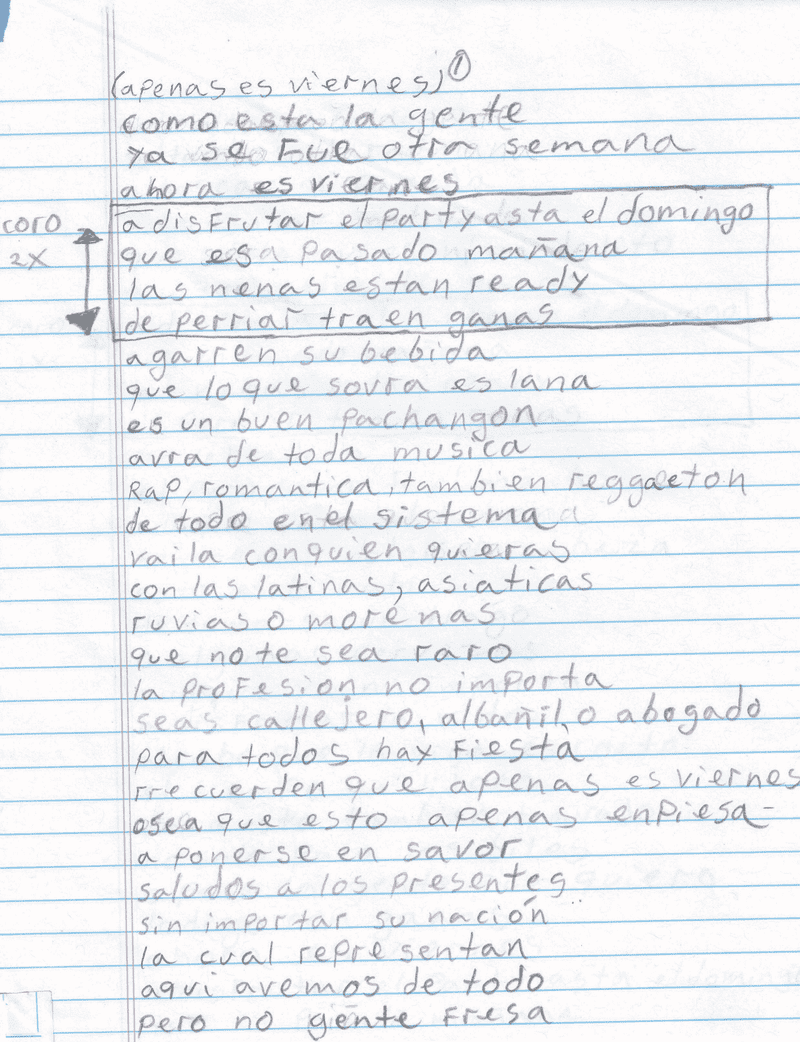 (apenas es viernes) 1
como esta la gente
ya se fue otra semana
ahora es viernes
coro
2x
a disfrutar el party asta el domingo
que esa pasado mañana
las nenas estan ready
de perriar traen ganas
agarren su bebida
que lo que sovra es lana
es un buen pachangon
avra de toda musica
Rap, romantica, tambien reggaeton
de todo en el sistema
vaila con quien quieras
con las latinas, asiaticas
ruvias o morenas
que no te sea raro
la profesion no importa
seas callejero, albañil, o abogado
para todos hay fiesta
rrecuerden que apenas es viernes
osea que esto apenas enpiesa-
a ponerse en savor
saludos a los presentes
sin importar su nación
la cual representan
aqui avemos de todo
pero no gente fresa